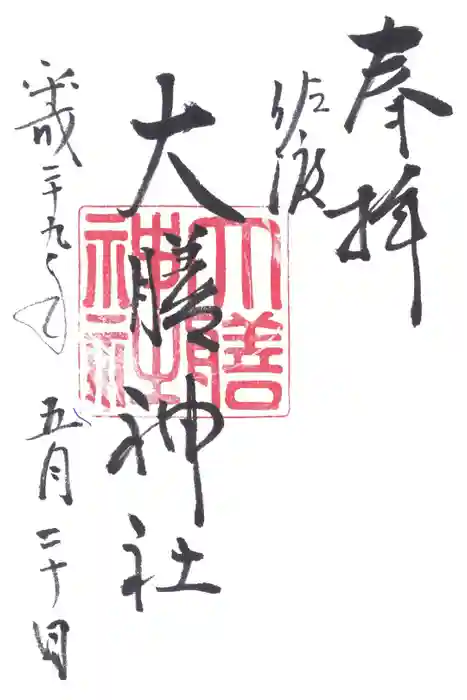 奉拝
佐渡
大膳神社
平成二十九年 五月二十日
大膳
神社